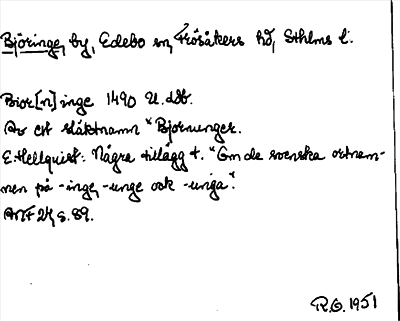 Björinge, by, Edebo sn, Frösåkers hd, Sthlms l.
Bior[n]inge 1490 U.db.
Av ett släktnamn *Bjornungar.
E. Hellquist: Några tillägg t. "Om de svenska ortnam-
nen på -inge, -unge och -unga".
ANF 24, s. 89.
R.O. 1951